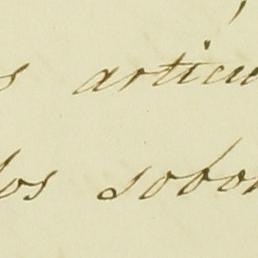 s artícu
los sobor